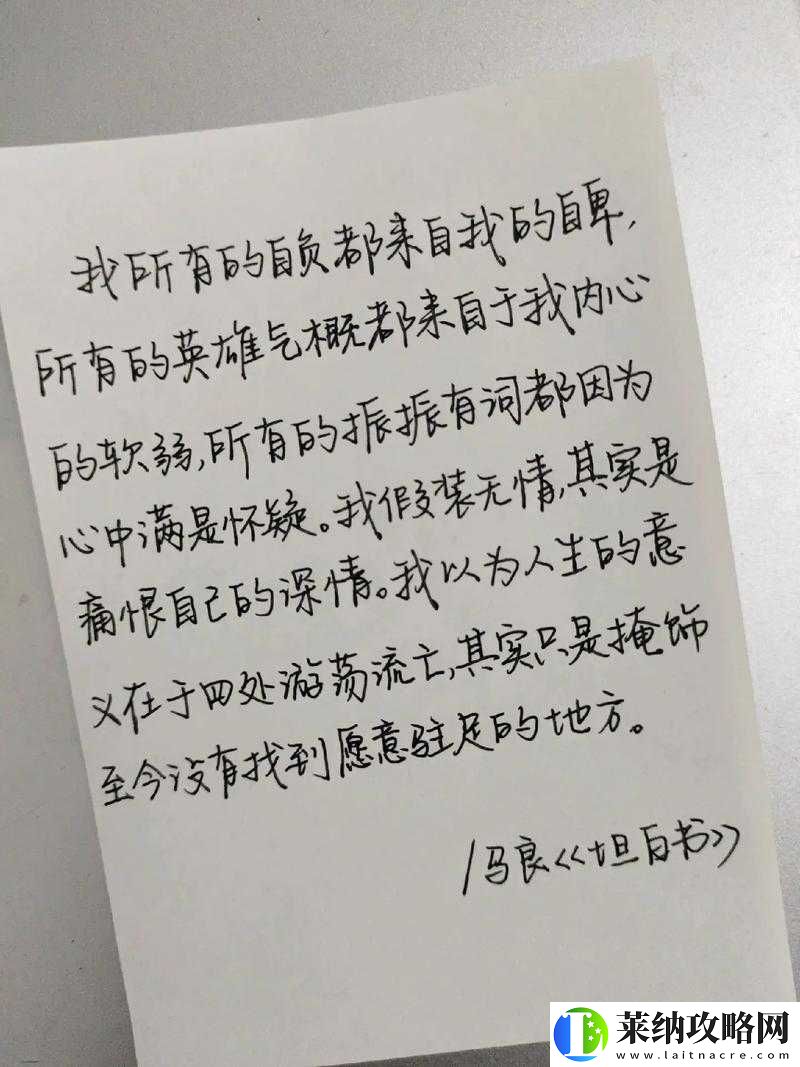 我所有的自负都来自我的自卑,
所有的英雄气概都来自于我内心
的软弱,所有的振振有词都因为
心中满是怀疑。我假装无情,其实是
痛恨自己的深情。我以为人生的意
义在于四处游荡流亡,其实只是掩饰
至今没有找到愿意驻足的地方。
/马良《坦白书》
莱纳攻略网
www.laitnacre.com